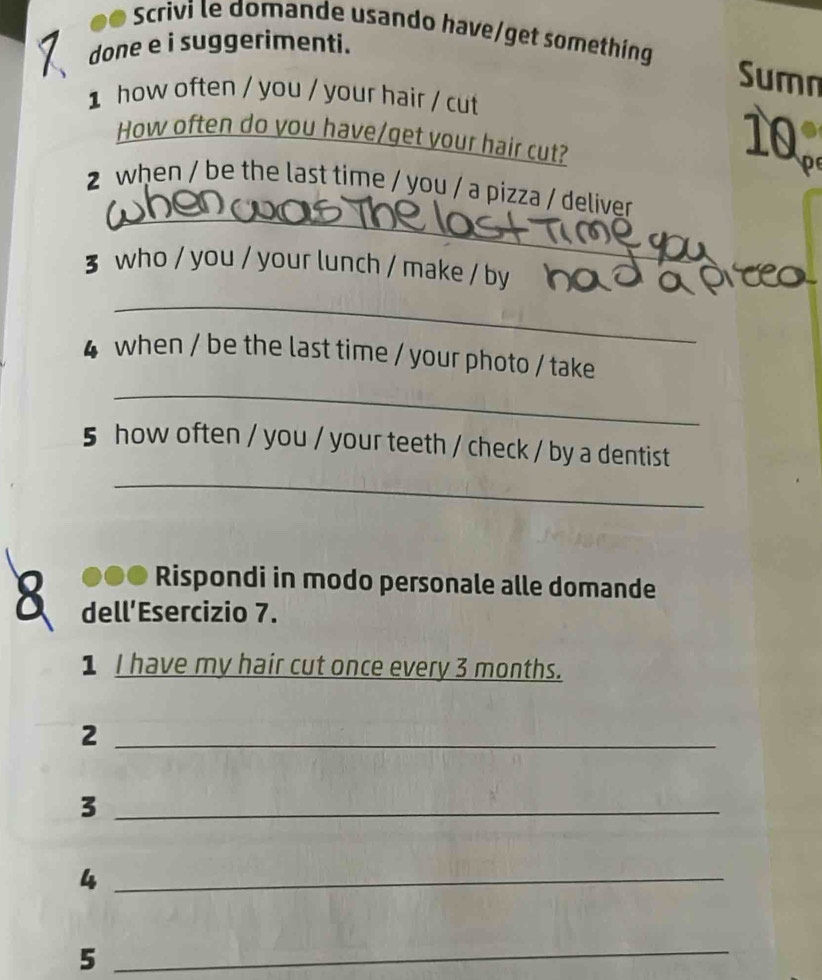 7 Scrivi le domande usando have/get something
done e i suggerimenti.
1 how often / you / your hair / cut
How often do you have/get your hair cut?
2 when / be the last time / you / a pizza / deliver
when was The last Time you
had a pizza
3 who / you / your lunch / make / by
4 when / be the last time / your photo / take
5 how often / you / your teeth / check / by a dentist
8 Rispondi in modo personale alle domande
dell'Esercizio 7.
1 I have my hair cut once every 3 months.
2
3
4
5
10